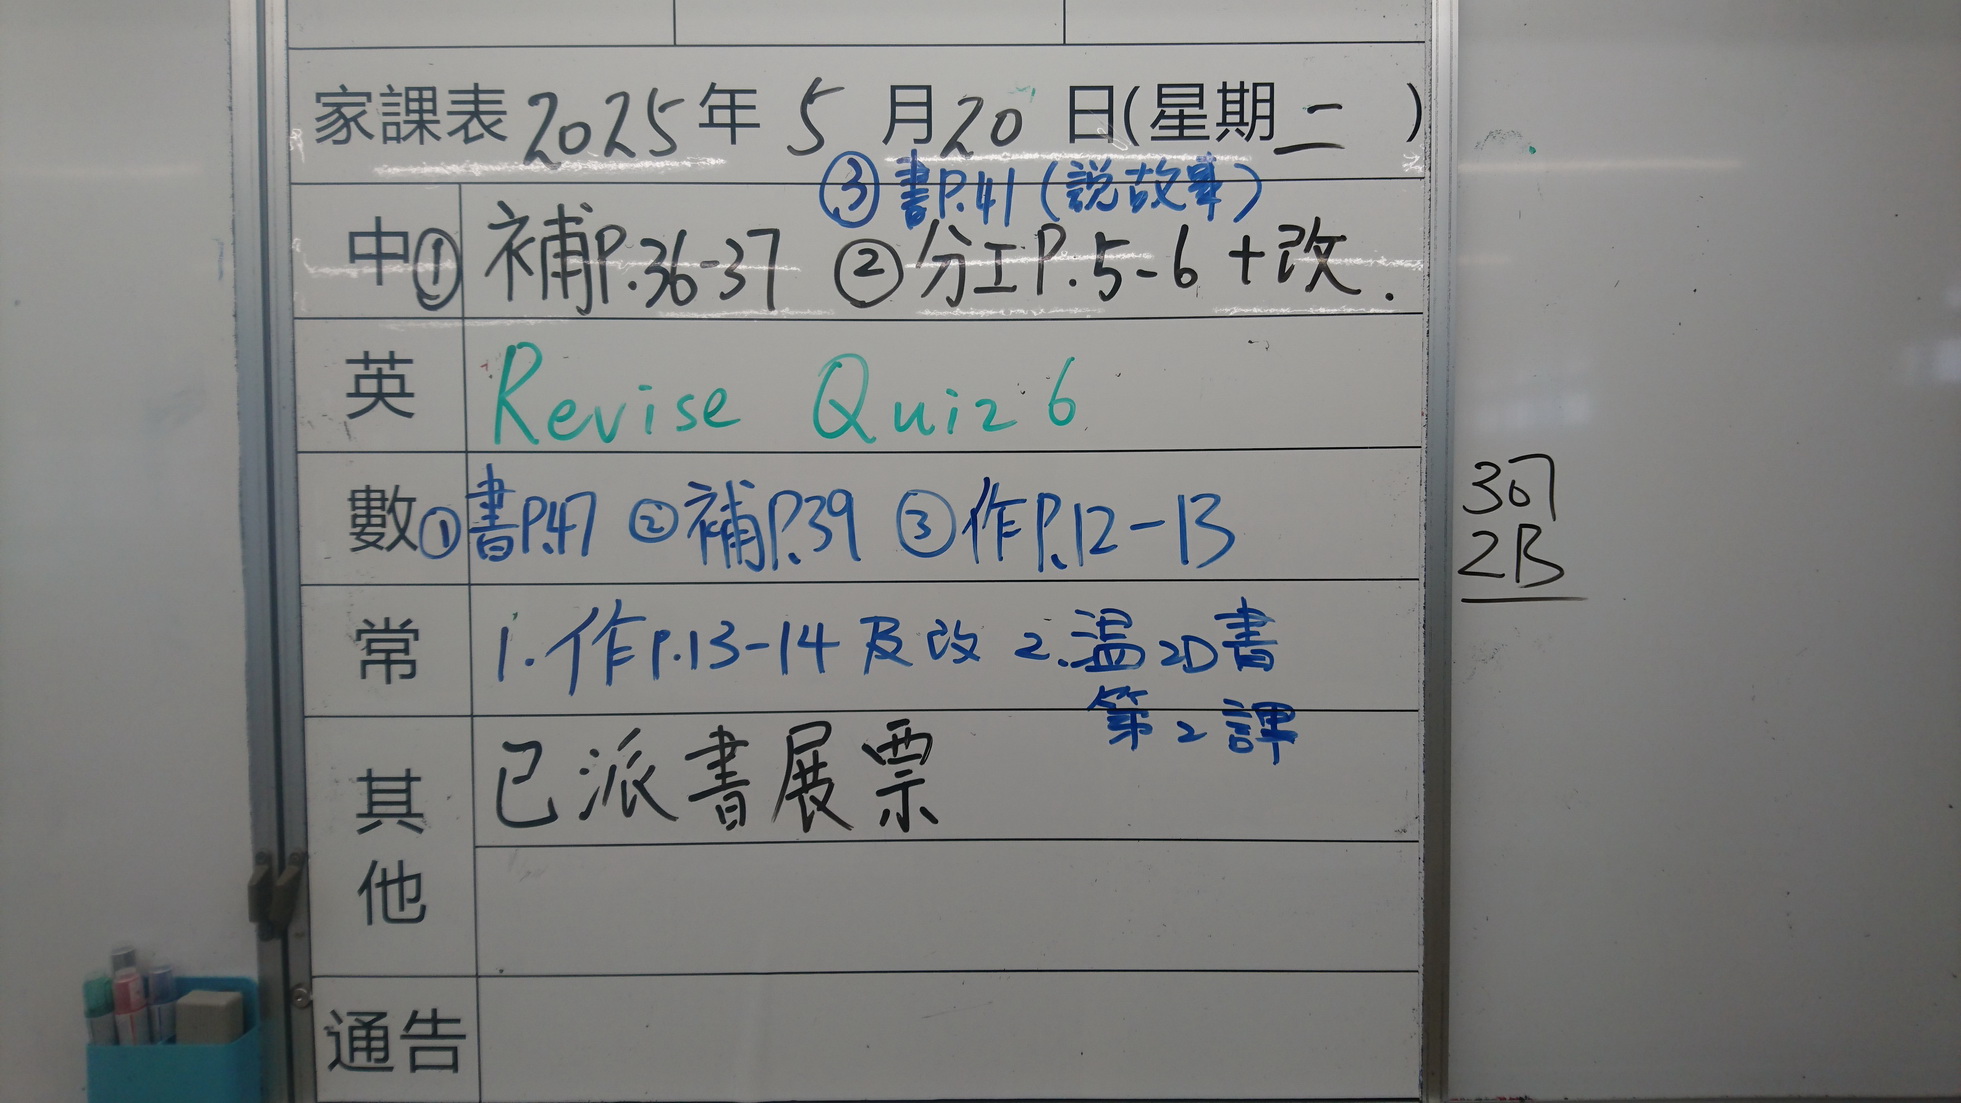 家課表 2025年 5月20日(星期二)
③書P.41(說故事)
中 ①補P.36-37 ②分工P.5-6+改.
英 Revise Quiz 6
數 ①書P.47 ②補P.39 ③作P.12-13
常 1.作P.13-14及改 2.温2D書
第2課
其他 已派書展票
通告
307
2B